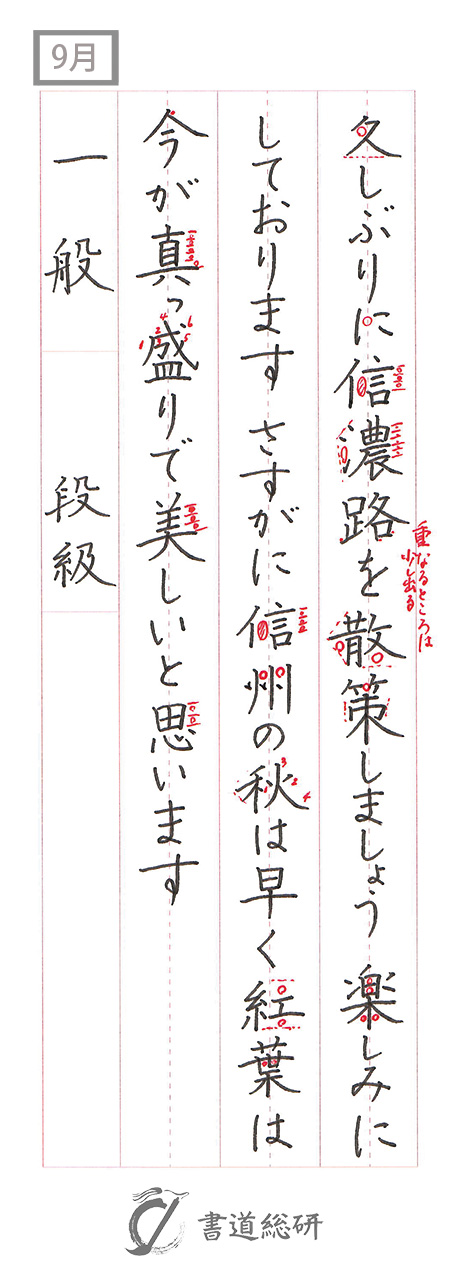 9月
久しぶりに信濃路を散策しましょう 楽しみに
重なるところは
少し出る
しております さすがに信州の秋は早く紅葉は
今が真っ盛りで美しいと思います
一般 段級
書道総研